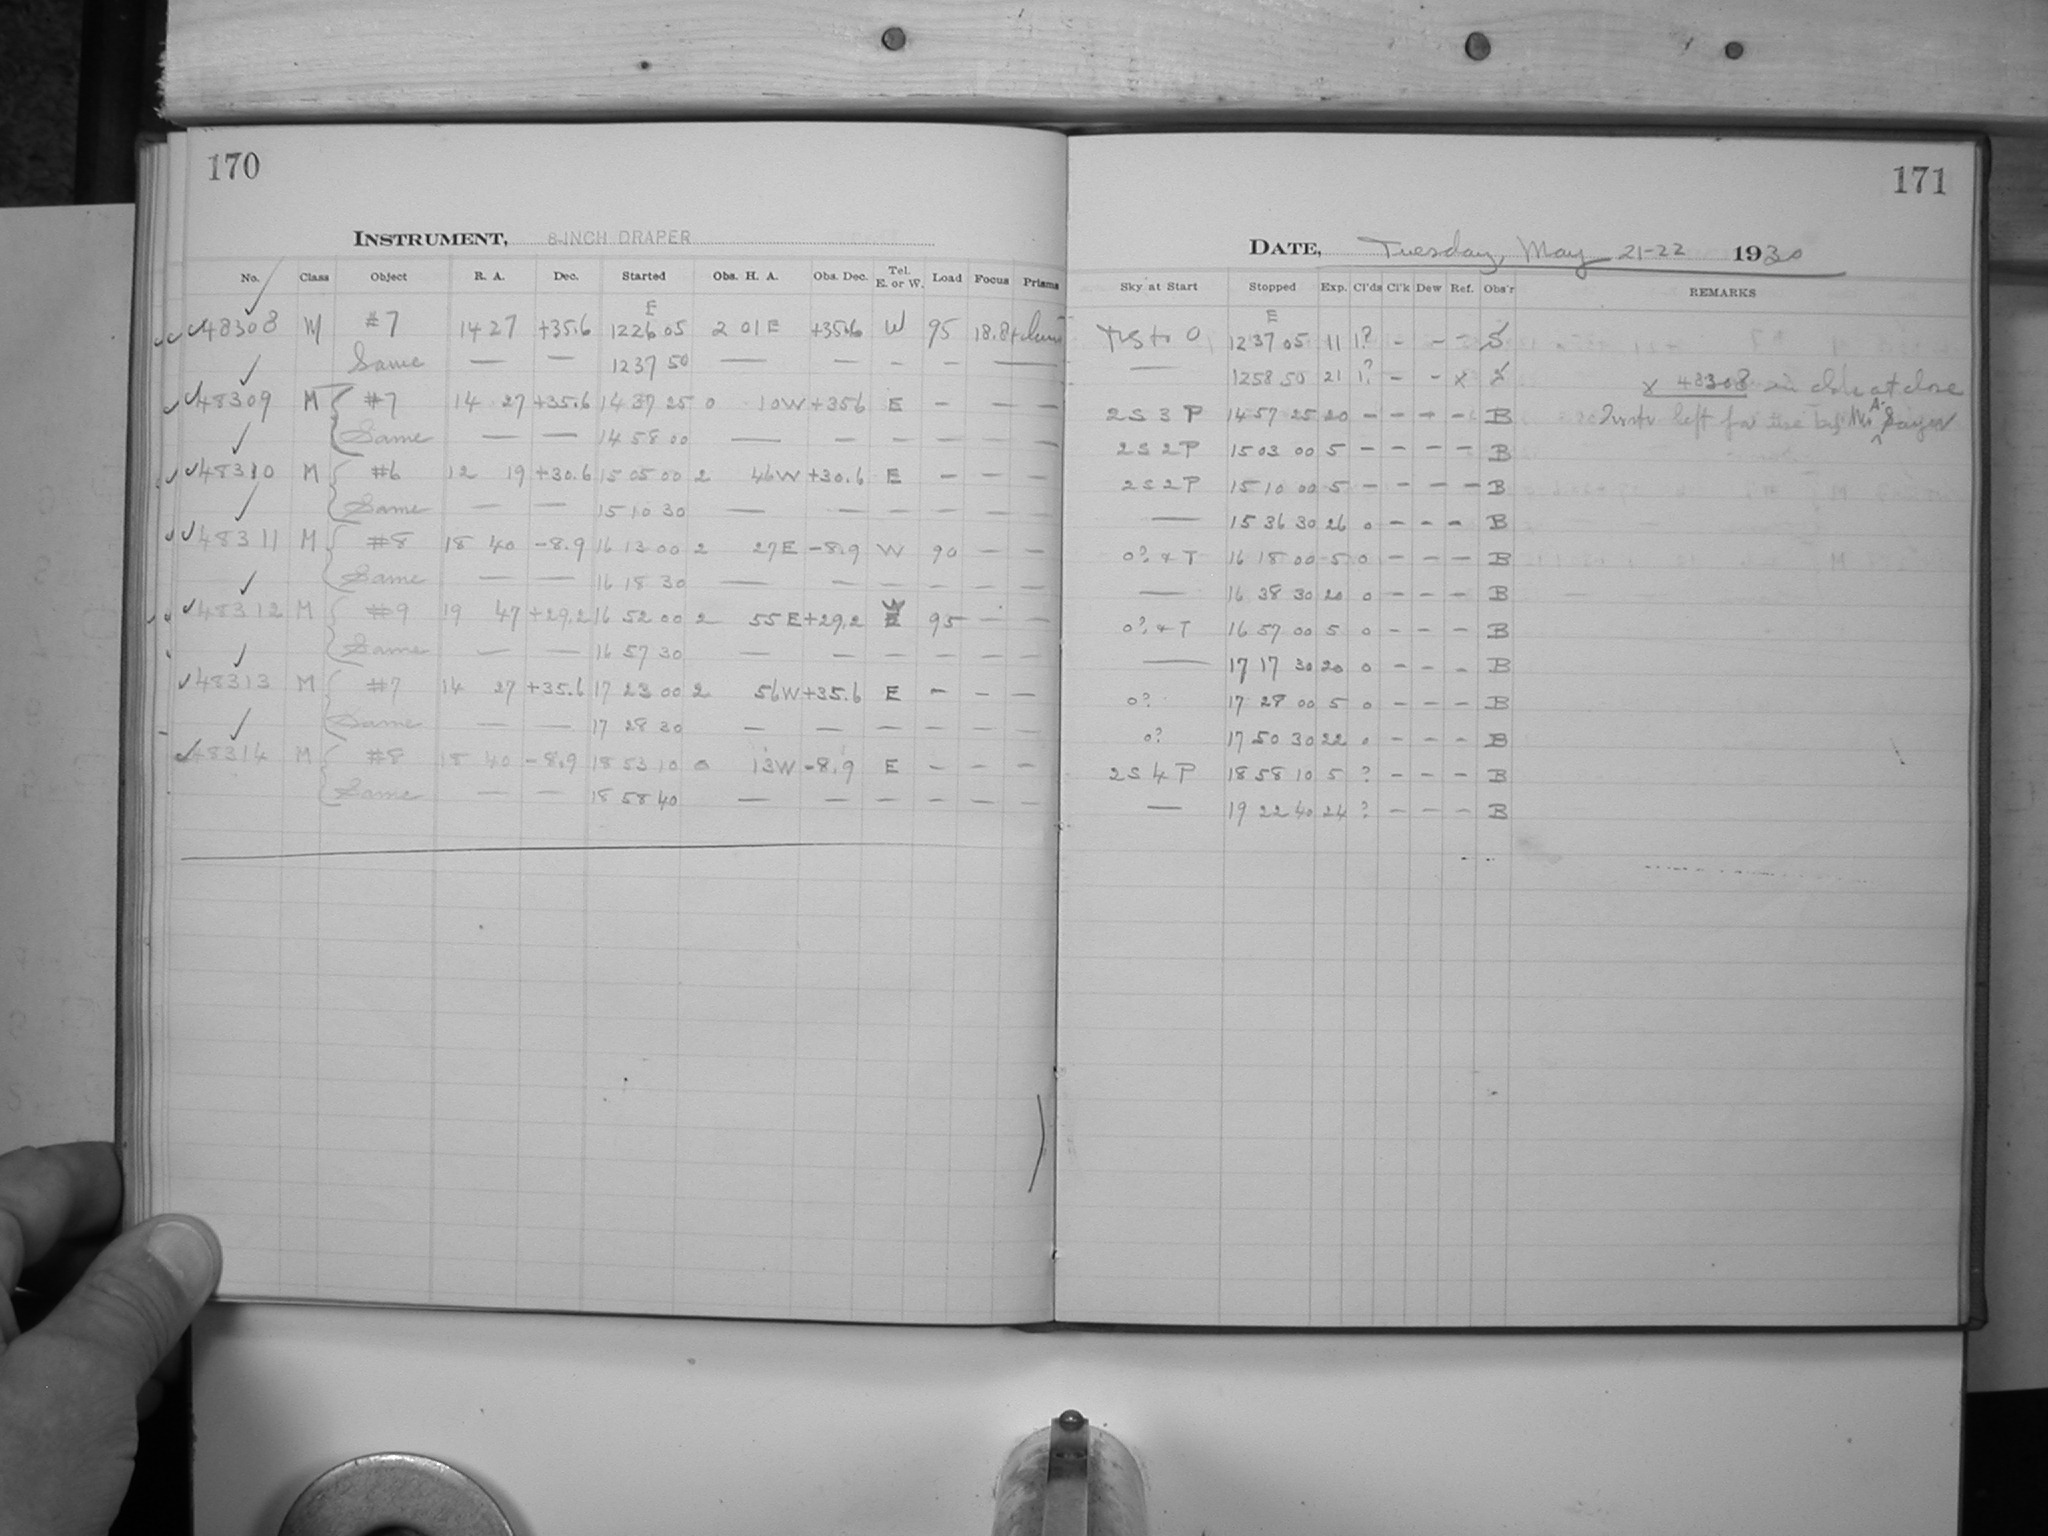 170
INSTRUMENT, 8-INCH DRAPER
No. Class Object R. A. Dec. Started Obs. H. A. Obs. Dec. Tel. E. or W. Load Focus Prisms
E
48308 M #7 14 27 +35.6 12 26 05 2 01 E +35.6 W 95 18.8
Same — — 12 37 50 — — - - - —
48309 M #7 14 27 +35.6 14 37 25 0 10 W +35 6 E - - -
Same — — 14 58 00 — — - - - -
48310 M #6 12 19 +30.6 15 05 00 2 46 W +30.6 E - - -
Same — — 15 10 30 — — - - - -
48311 M #8 18 40 -8.9 16 13 00 2 27 E -8.9 W 90 - -
Same — — 16 18 30 — — - - - -
48312 M #9 19 47 +29.2 16 52 00 2 55 E +29.2 W 95 - -
Same — — 16 57 30 — — - - - -
48313 M #7 14 27 +35.6 17 23 00 2 56 W +35.6 E - - -
Same — — 17 28 30 — — - - - -
48314 M #8 18 40 -8.9 18 53 10 0 13 W -8.9 E - - -
Same — — 18 58 40 — — - - - -
171
DATE, Tuesday, May 21-22 1930
Sky at Start Stopped Exp. Cl'ds Cl'k Dew Ref. Obs'r REMARKS
E
12 37 05 11 1? - - - S
— 12 58 50 21 1? - - x S x 48308 in at close
2 S 3 P 14 57 25 20 - - - - B left for use by Mr A. Sayer
2 S 2 P 15 03 00 5 - - - - B
2 S 2 P 15 10 00 5 - - - - B
— 15 36 30 26 0 - - - B
0? + T 16 18 00 5 0 - - - B
— 16 38 30 20 0 - - - B
0? + T 16 57 00 5 0 - - - B
— 17 17 30 20 0 - - - B
0? 17 28 00 5 0 - - - B
0? 17 50 30 22 0 - - - B
2 S 4 P 18 58 10 5 ? - - - B
— 19 22 40 24 ? - - - B